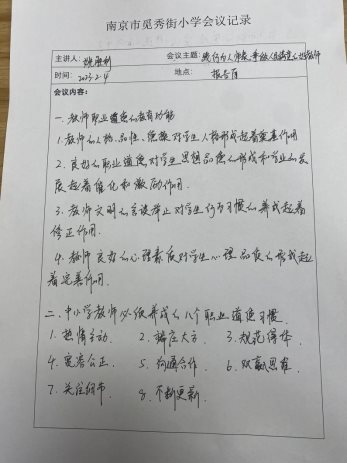 南京市觅秀街小学会议记录
主讲人: 会议主题: 践行为人师表、争做人民满意的好教师
时间: 2023.2.4 地点: 报告厅
会议内容:
一.教师职业道德的教育功能
1.教师的人格、品性、思想对学生人格形成起着奠基作用
2.良好的职业道德对学生思想品德的形成和学业的发
展起着催化和激励作用.
3.教师文明的言谈举止对学生行为习惯的养成起着
修正作用.
4.教师良好的心理素质对学生心理品质的形成起
着完善作用.
二.中小学教师必须养成的八个职业道德习惯.
1.热情主动. 2.端庄大方. 3.规范得体.
4.宽容公正. 5.沟通合作. 6.双赢思维.
7.关注细节. 8.不断更新.